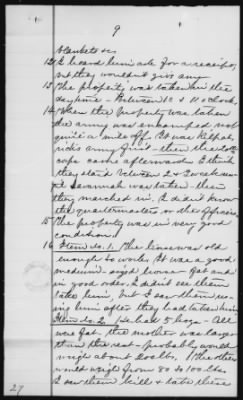 9
blankets &c
12 I heard him ask for a receipt,
but they wouldn't give any
13 The property was taken in the
daytime - Between 10 & 11 o'clock,
14 When the property was taken
the army was encamped not
quite a mile off. It was Kilpat-
ricks army first - then the 20th
corps came afterwards I think
they staid between 2 & 3 weeks
Savannah was taken - then
they marched in. I didn't know
the quartermasters or the officers
15 The property was in very good
condition
16 Item No. 1. The horse was old
enough to work. It was a good
medium-sized horse - fat and
in good order. I didn't see them
take him, but I saw them us-
ing him after they had taken him
Item No. 2 He had 5 hogs - All
was fat. the mother was larger
than the rest - probably would
weigh about 200 lbs. The others
would weigh from 80 to 100 lbs.
I saw them kill & take these
27